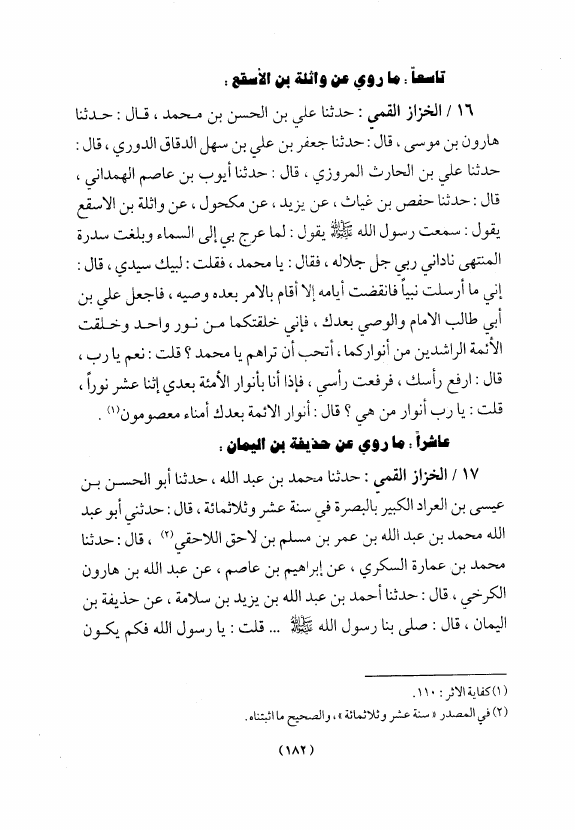 تاسعاً : ما روي عن واثلة بن الأسقع :
١٦ / الخزاز القمي : حدثنا علي بن الحسن بن محمد ، قال : حدثنا
هارون بن موسى ، قال : حدثنا جعفر بن علي بن سهل الدقاق الدوري ، قال :
حدثنا علي بن الحارث المروزي ، قال : حدثنا أيوب بن عاصم الهمداني ،
قال : حدثنا حفص بن غياث ، عن يزيد ، عن مكحول ، عن واثلة بن الاسقع
يقول : سمعت رسول الله ﷺ يقول : لما عرج بي إلى السماء وبلغت سدرة
المنتهى ناداني ربي جل جلاله ، فقال : يا محمد ، فقلت : لبيك سيدي ، قال :
إني ما أرسلت نبياً فانقضت أيامه إلا أقام بالامر بعده وصيه ، فاجعل علي بن
أبي طالب الامام والوصي بعدك ، فإني خلقتكما من نور واحد وخلقت
الأئمة الراشدين من أنواركما ، أتحب أن تراهم يا محمد ؟ قلت : نعم يا رب ،
قال : ارفع رأسك ، فرفعت رأسي ، فإذا أنا بأنوار الأمئة بعدي إثنا عشر نوراً ،
قلت : يا رب أنوار من هي ؟ قال : أنوار الائمة بعدك أمناء معصومون(١) .
عاشراً : ما روي عن حذيفة بن اليمان :
١٧ / الخزاز القمي : حدثنا محمد بن عبد الله ، حدثنا أبو الحسن بن
عيسى بن العراد الكبير بالبصرة في سنة عشر وثلاثمائة ، قال : حدثني أبو عبد
الله محمد بن عبد الله بن عمر بن مسلم بن لاحق اللاحقي(٢) ، قال : حدثنا
محمد بن عمارة السكري ، عن إبراهيم بن عاصم ، عن عبد الله بن هارون
الكرخي ، قال : حدثنا أحمد بن عبد الله بن يزيد بن سلامة ، عن حذيفة بن
اليمان ، قال : صلى بنا رسول الله ﷺ ... قلت : يا رسول الله فكم يكون
(١) كفاية الاثر : ١١٠.
(٢) في المصدر «سنة عشر وثلاثمائة» ، والصحيح ما اثبتناه.
(١٨٢)